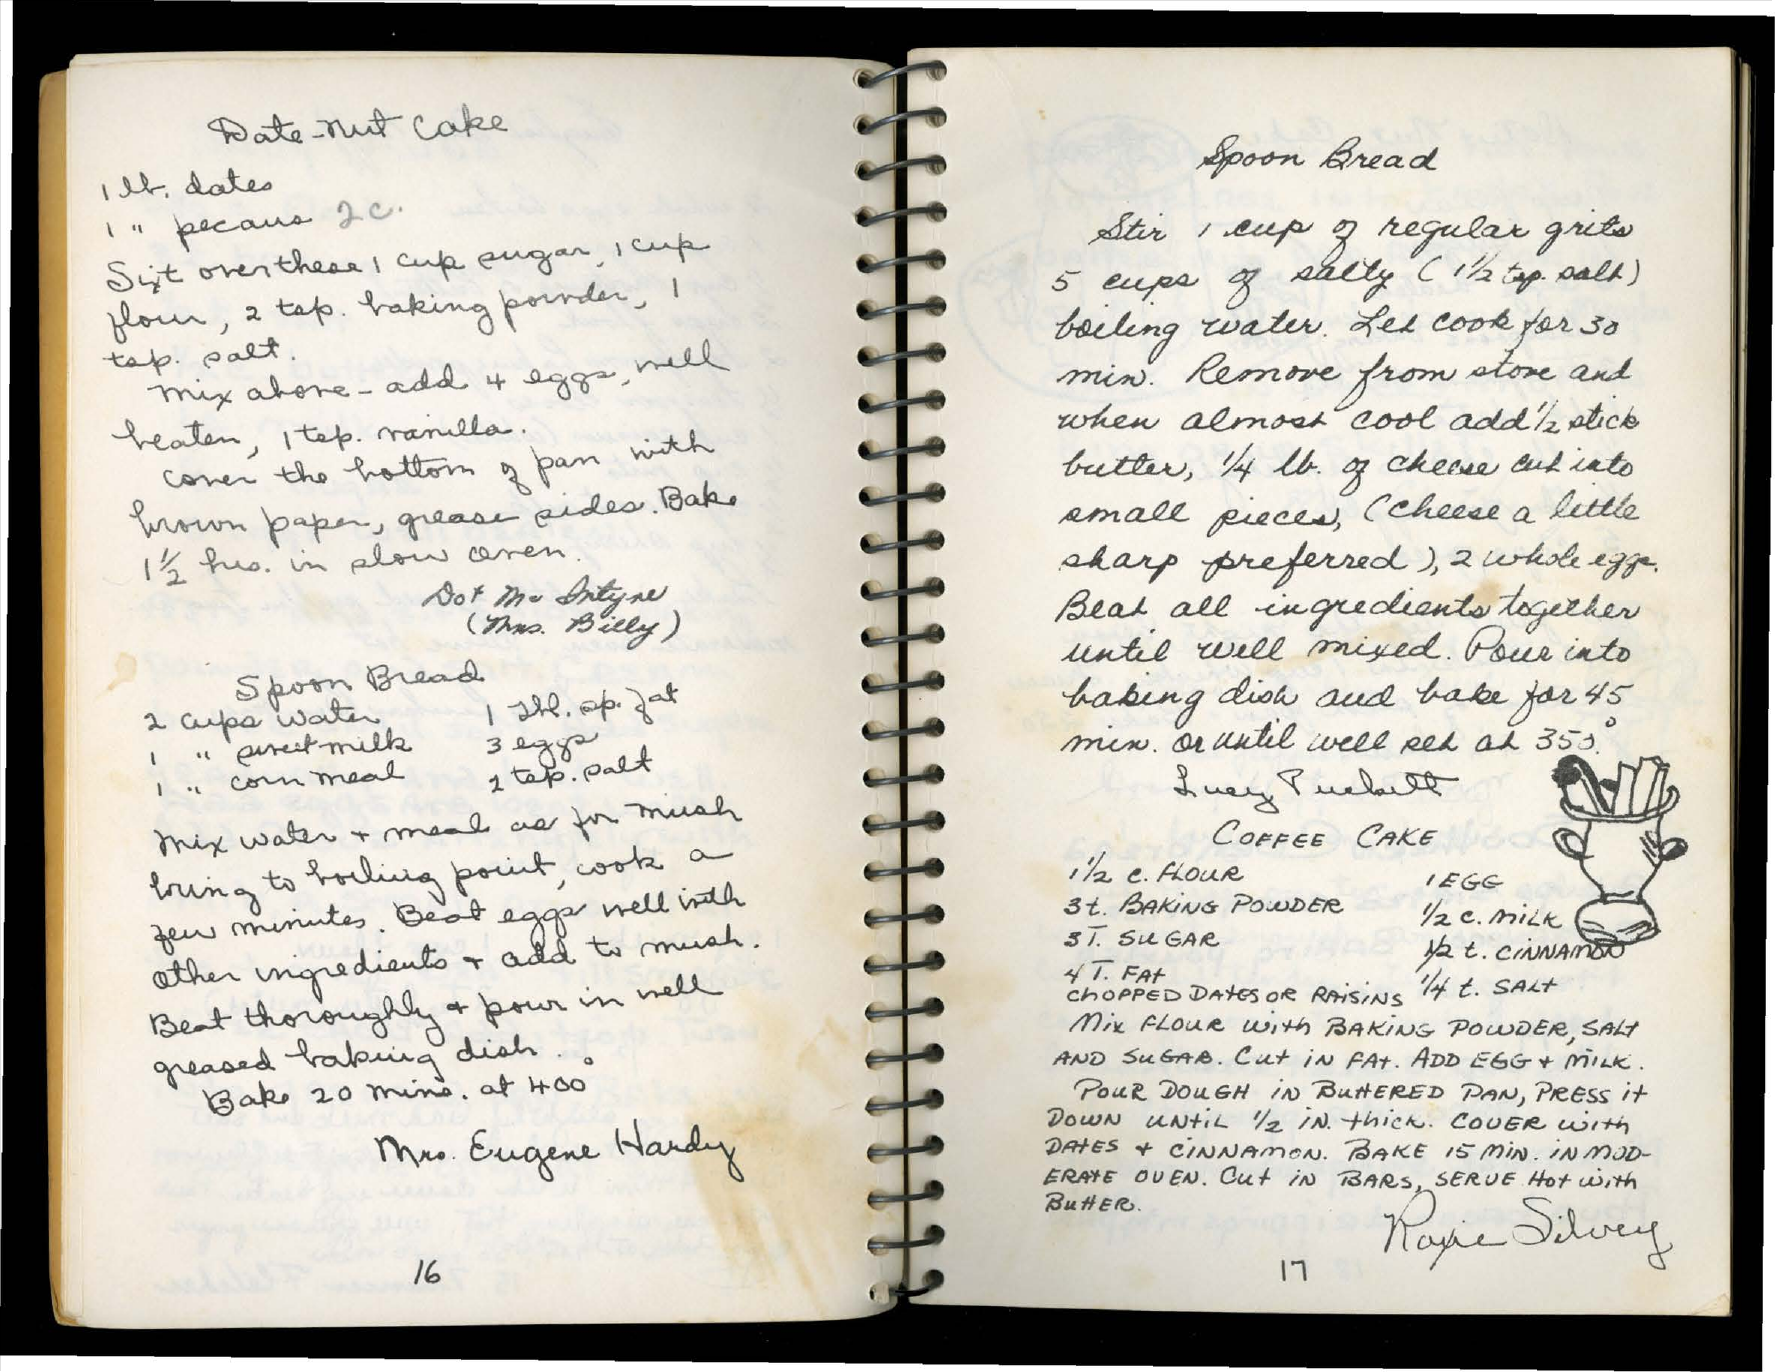 Date-Nut Cake
1 lb. dates
1 " pecans 2 c.
Sift over these 1 cup sugar, 1 cup
flour, 2 tsp. baking powder, 1
tsp. salt.
Mix above - add 4 eggs, well
beaten, 1 tsp. vanilla.
Cover the bottom of pan with
brown paper, grease sides. Bake
1½ hrs. in slow oven.
Dot Mc Intyre
(Mrs. Billy)
Spoon Bread
2 cups water 1 Tbl. sp. fat
1 " sweet milk 3 eggs
1 " corn meal 2 tsp. salt
Mix water + meal as for mush
bring to boiling point, cook a
few minutes. Beat eggs well with
other ingredients + add to mush.
Beat thoroughly + pour in well
greased baking dish.
Bake 20 mins. at 400°
Mrs. Eugene Hardy
16
Spoon Bread
Stir 1 cup of regular grits
5 cups of salty (1½ tsp. salt)
boiling water. Let cook for 30
min. Remove from stove and
when almost cool add ½ stick
butter, ¼ lb. of cheese cut into
small pieces, (cheese a little
sharp preferred), 2 whole eggs.
Beat all ingredients together
until well mixed. Pour into
baking dish and bake for 45
min. or until well set at 350°.
Lucy Puckett
COFFEE CAKE
1½ c. FLOUR 1 EGG
3 t. BAKING POWDER ½ c. MILK
3 T. SUGAR ½ t. CINNAMON
4 T. FAT ¼ t. SALT
CHOPPED DATES OR RAISINS
MIX FLOUR WITH BAKING POWDER, SALT
AND SUGAR. CUT IN FAT. ADD EGG + MILK.
POUR DOUGH IN BUTTERED PAN, PRESS IT
DOWN UNTIL ½ IN. THICK. COVER WITH
DATES + CINNAMON. BAKE 15 MIN. IN MOD-
ERATE OVEN. CUT IN BARS, SERVE HOT WITH
BUTTER.
Roxie Silvey
17